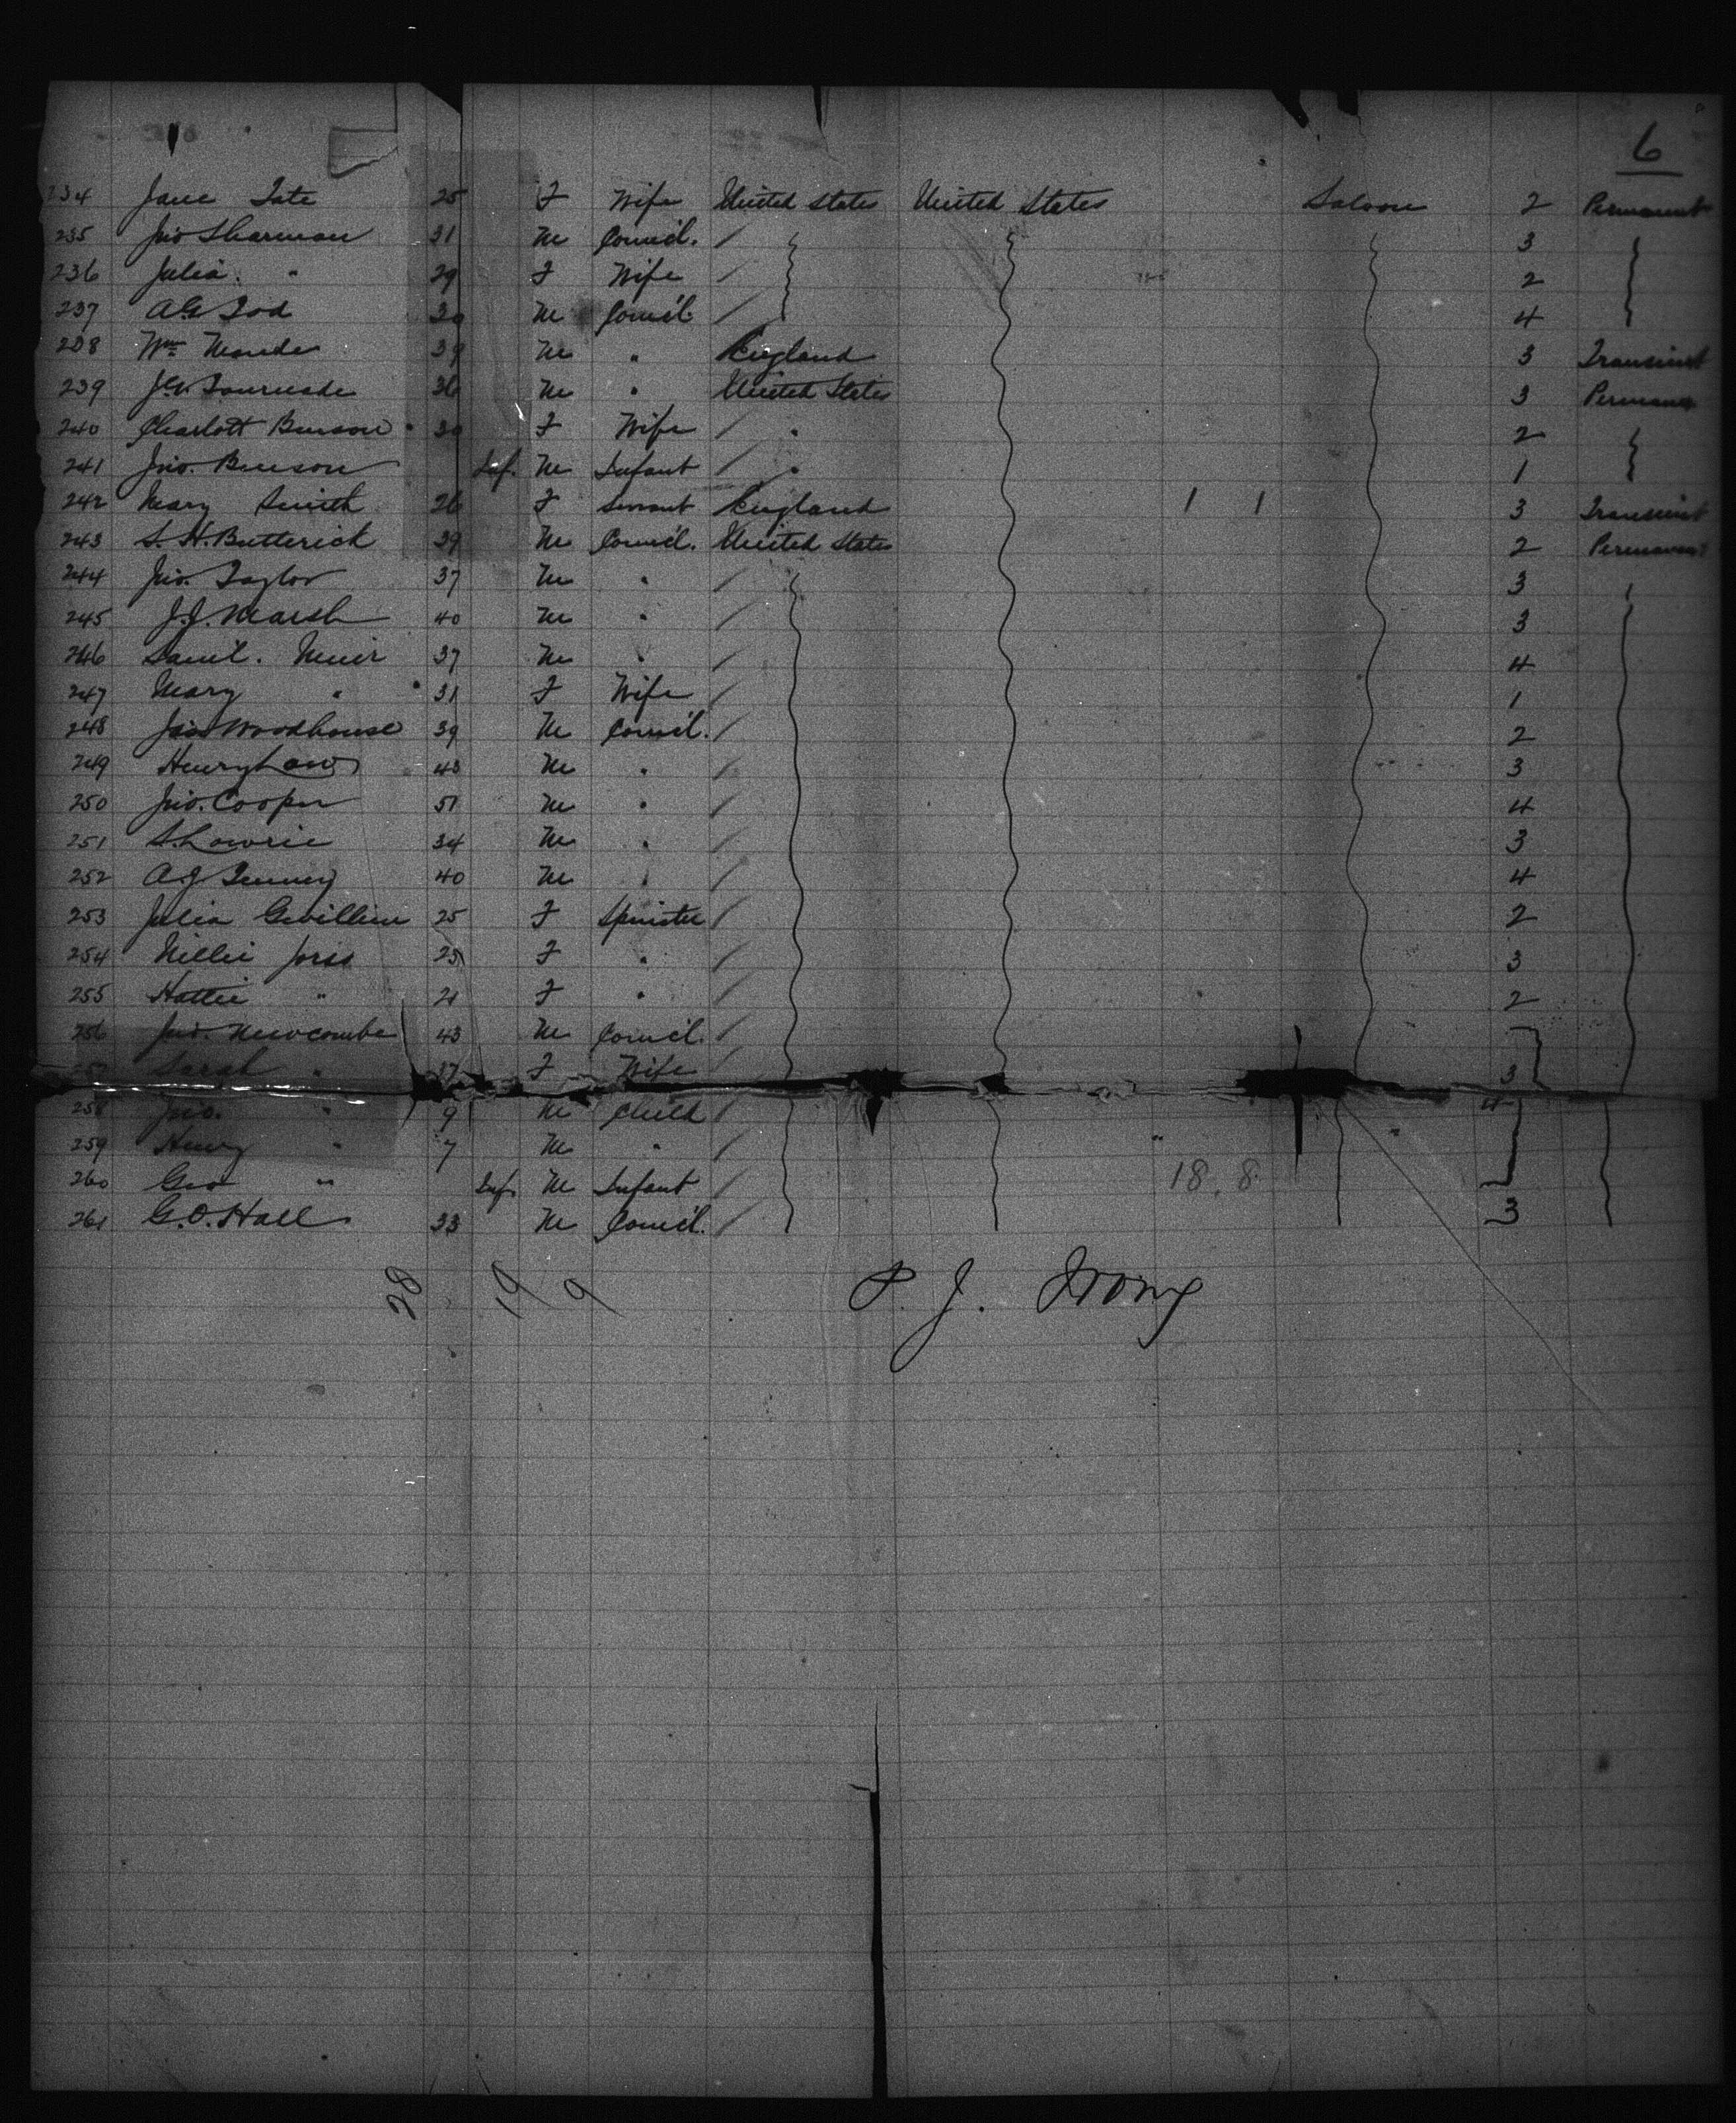 6
234 Jane Tate 25 F Wife United States United States Saloon 2 Permanent
235 Jno Sharman 31 M Comcl. 3
236 Julia " 29 F Wife 2
237 A G Tod 30 M Comcl. 4
238 Wm 39 M " England 3 Transient
239 36 M " United States 3 Permanen
240 Charlott Benson 30 F Wife " 2
241 Jno. Benson Inf. M Infant " 1
242 Mary Smith 26 F Servant England 1 1 3 Transient
243 S. H. Butterick 39 M Comcl. United States 2 Permanent
244 Jno. Taylor 37 M " 3
245 J. J. Marsh 40 M " 3
246 Saml. Muir 37 M " 4
247 Mary " 31 F Wife 1
248 Jas Woodhouse 39 M Comcl. 2
249 Henry Law 43 M " 3
250 Jno. Cooper 51 M " 4
251 S. Lowrie 34 M " 3
252 A J 40 M " 4
253 Julia 25 F Spinster 2
254 Nellie Joriss 23 F " 3
255 Hattie " 21 F " 2
256 Jno. Newcombe 43 M Comcl.
257 Sarah " 37 F Wife 3
258 Jno. " 9 M Child 4
259 Henry " 7 M "
260 Geo " Inf. M Infant 18. 8
261 G. O. Hall 33 M Comcl. 3
28 19 9 P. J. Irving